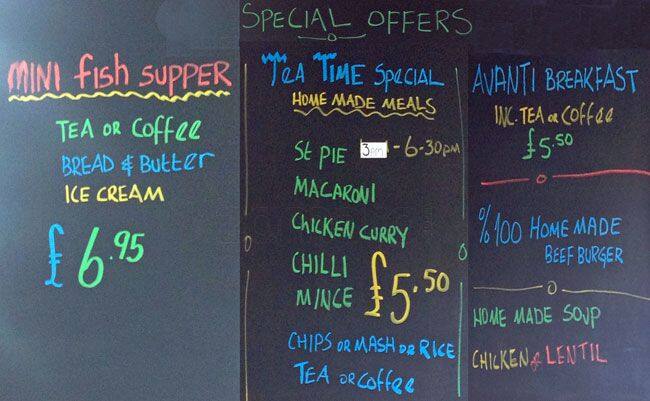 SPECIAL OFFERS
MINI fish SUPPER
TEA OR Coffee
BREAD & Butter
ICE CREAM
£6.95
TEA TIME SPECIAL
HOME MADE MEALS
St PIE 3PM - 6-30pm
MACARONI
CHICKEN CURRY
CHILLI
MINCE £5.50
CHIPS OR MASH OR RICE
TEA OR Coffee
AVANTI BREAKFAST
INC. TEA OR Coffee
£5.50
%100 HOME MADE
BEEF BURGER
HOME MADE SOUP
CHICKEN OR LENTIL